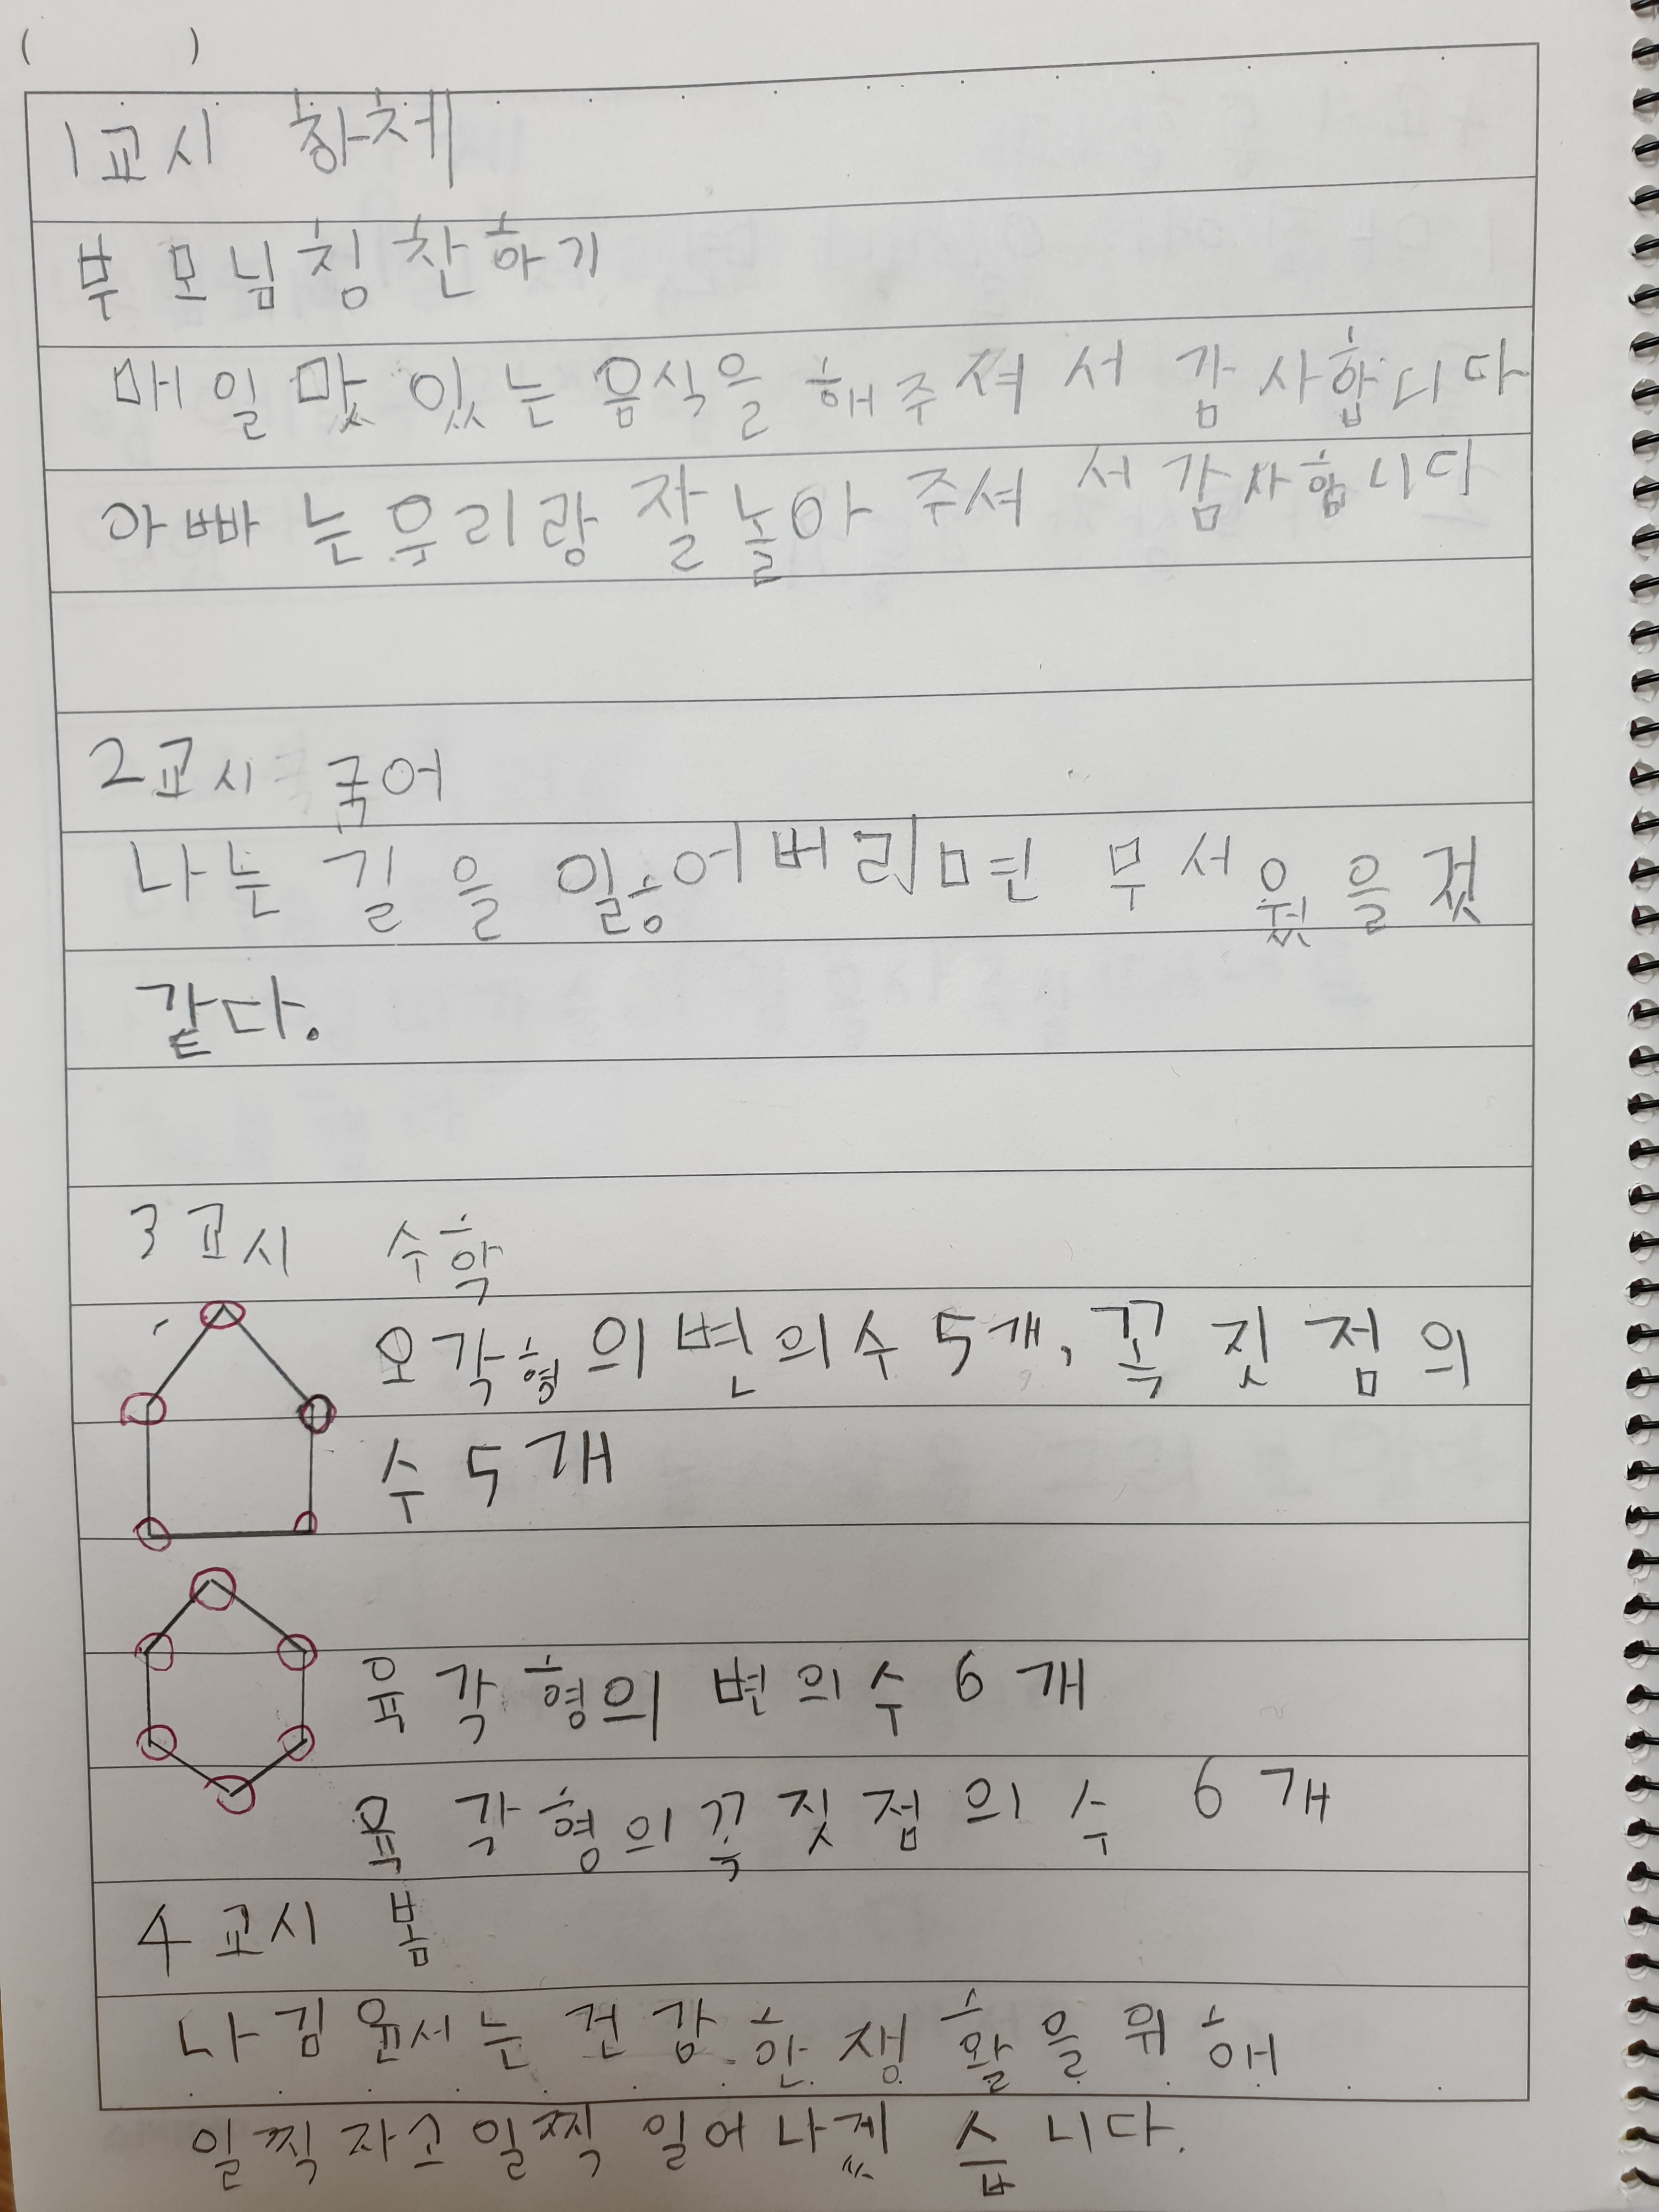 ( )
1교시 창체
부모님칭찬하기
매일 맛있는 음식을 해주셔서 감사합니다
아빠는우리랑 잘 놀아 주셔서 감사합니다
2교시 국어
나는 길을 잃어버리면 무서웠을 겄
같다.
3교시 수학
오각형의 변의수 5개, 꼭짓점의
수 5개
육각형의 변의수 6개
육각형의 꼭짓점의 수 6개
4교시 봄
나 김윤서는 건강한 생활을 위해
일찍자고 일찍 일어나겠습니다.